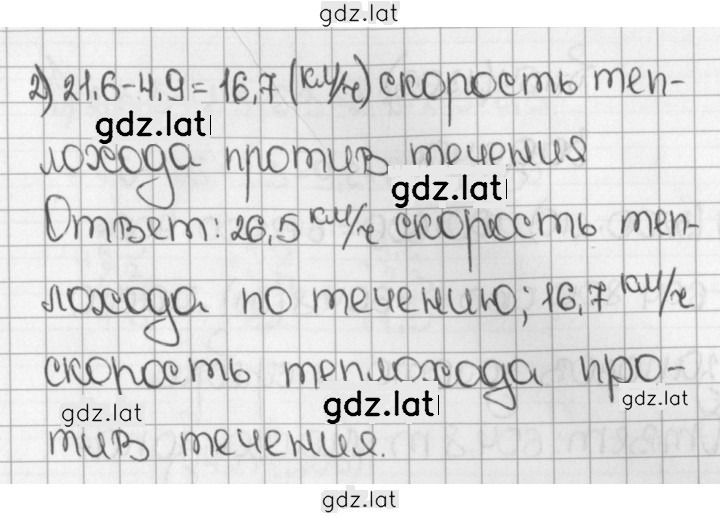 gdz.lat
2) 21,6-4,9=16,7 (км/ч) скорость теп-
gdz.lat
лохода против течения
gdz.lat
Ответ: 26,5 км/ч скорость теп-
лохода по течению; 16,7 км/ч
скорость теплохода про-
gdz.lat gdz.lat gdz.lat
тив течения.
gdz.lat